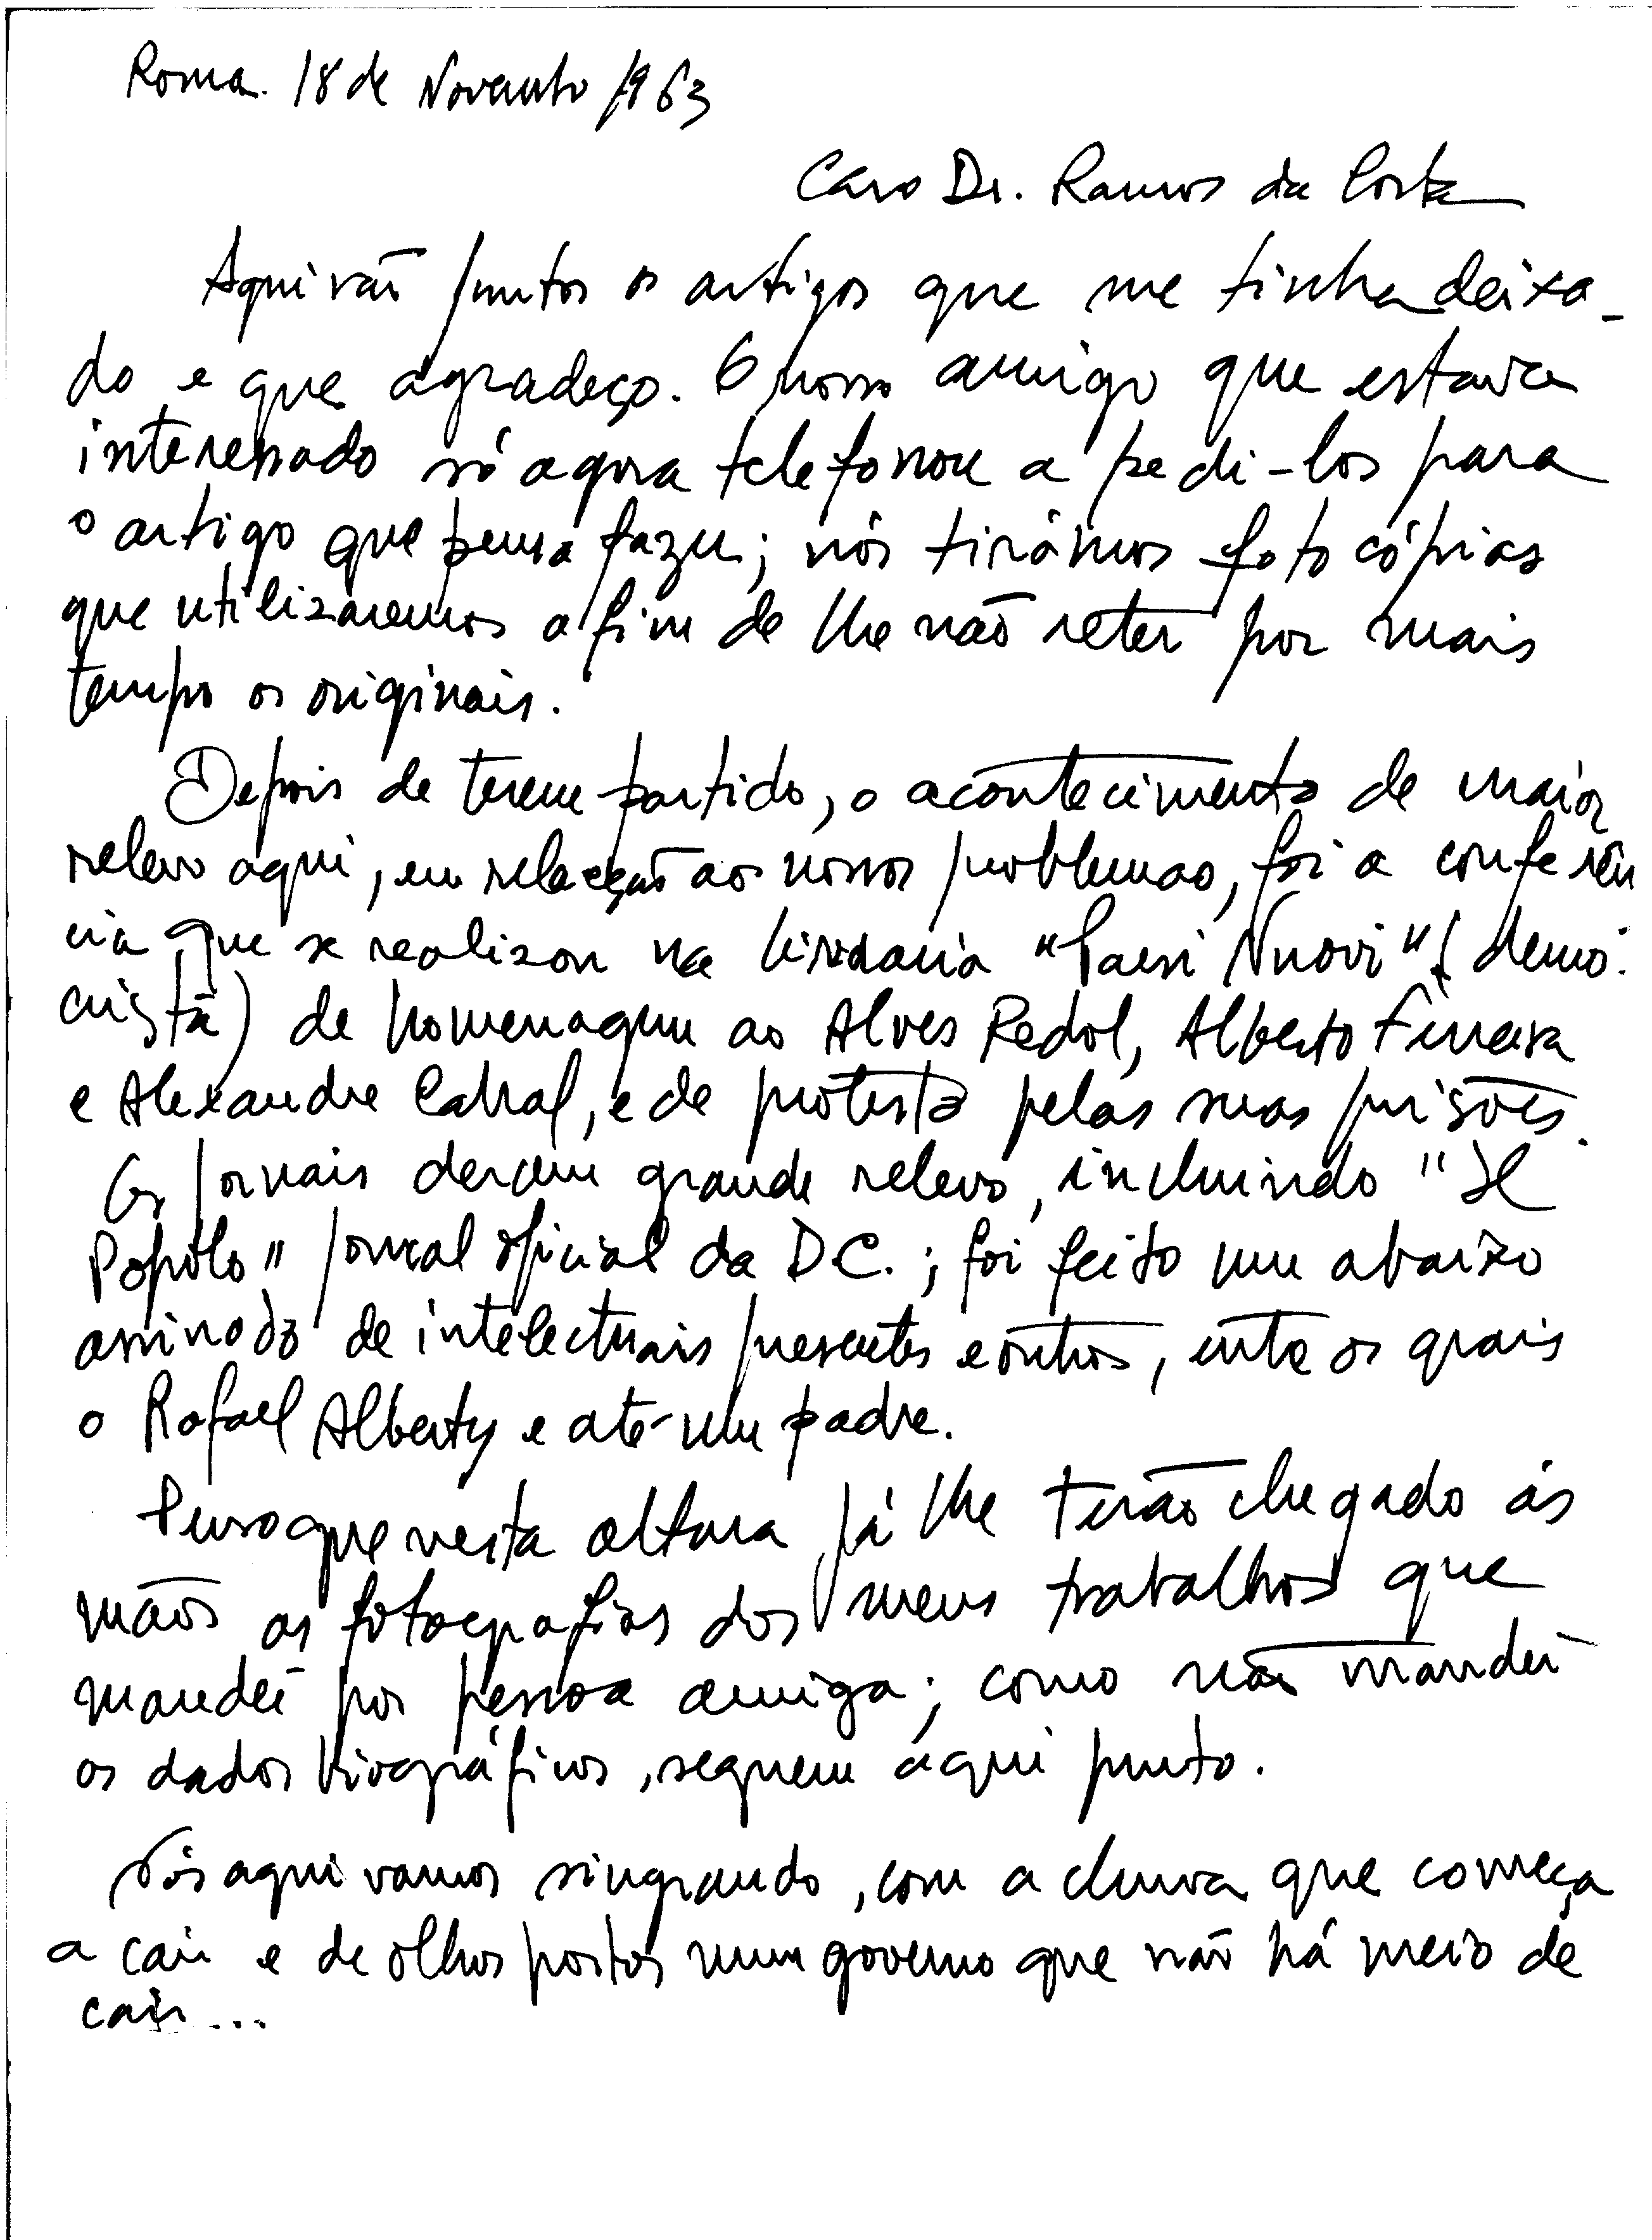 Roma. 18 de Novembro 1963
Caro Dr. Ramos da Costa
Aqui vão juntos os artigos que me tinha deixa-
do e que agradeço. O nosso amigo que estava
interessado só agora telefonou a pedi-los para
o artigo que pensa fazer; nós tirámos fotocópias
que utilizaremos a fim de lhe não reter por mais
tempo os originais.
Depois de terem partido, o acontecimento de maior
relevo aqui, em relacção aos nossos problemas, foi a conferên
cia que se realizou na livraria "Paesi Nuovi" (demo.
cristã) de homenagem ao Alves Redol, Alberto Ferreira
e Alexandre Cabral, e de protesto pelas suas prisões.
Os jornais deram grande relevo, incluindo "Il
Popolo" jornal oficial da D.C.; foi feito um abaixo
assinado de intelectuais presentes e outros, entre os quais
o Rafael Alberty e até um padre.
Penso que nesta altura já lhe terão chegado ás
mãos as fotografias dos meus trabalhos que
mandei por pessoa amiga; como não mandei
os dados biográficos, seguem aqui junto.
Nós aqui vamos singrando, com a chuva que começa
a cair e de olhos postos num governo que não há meio de
cair...